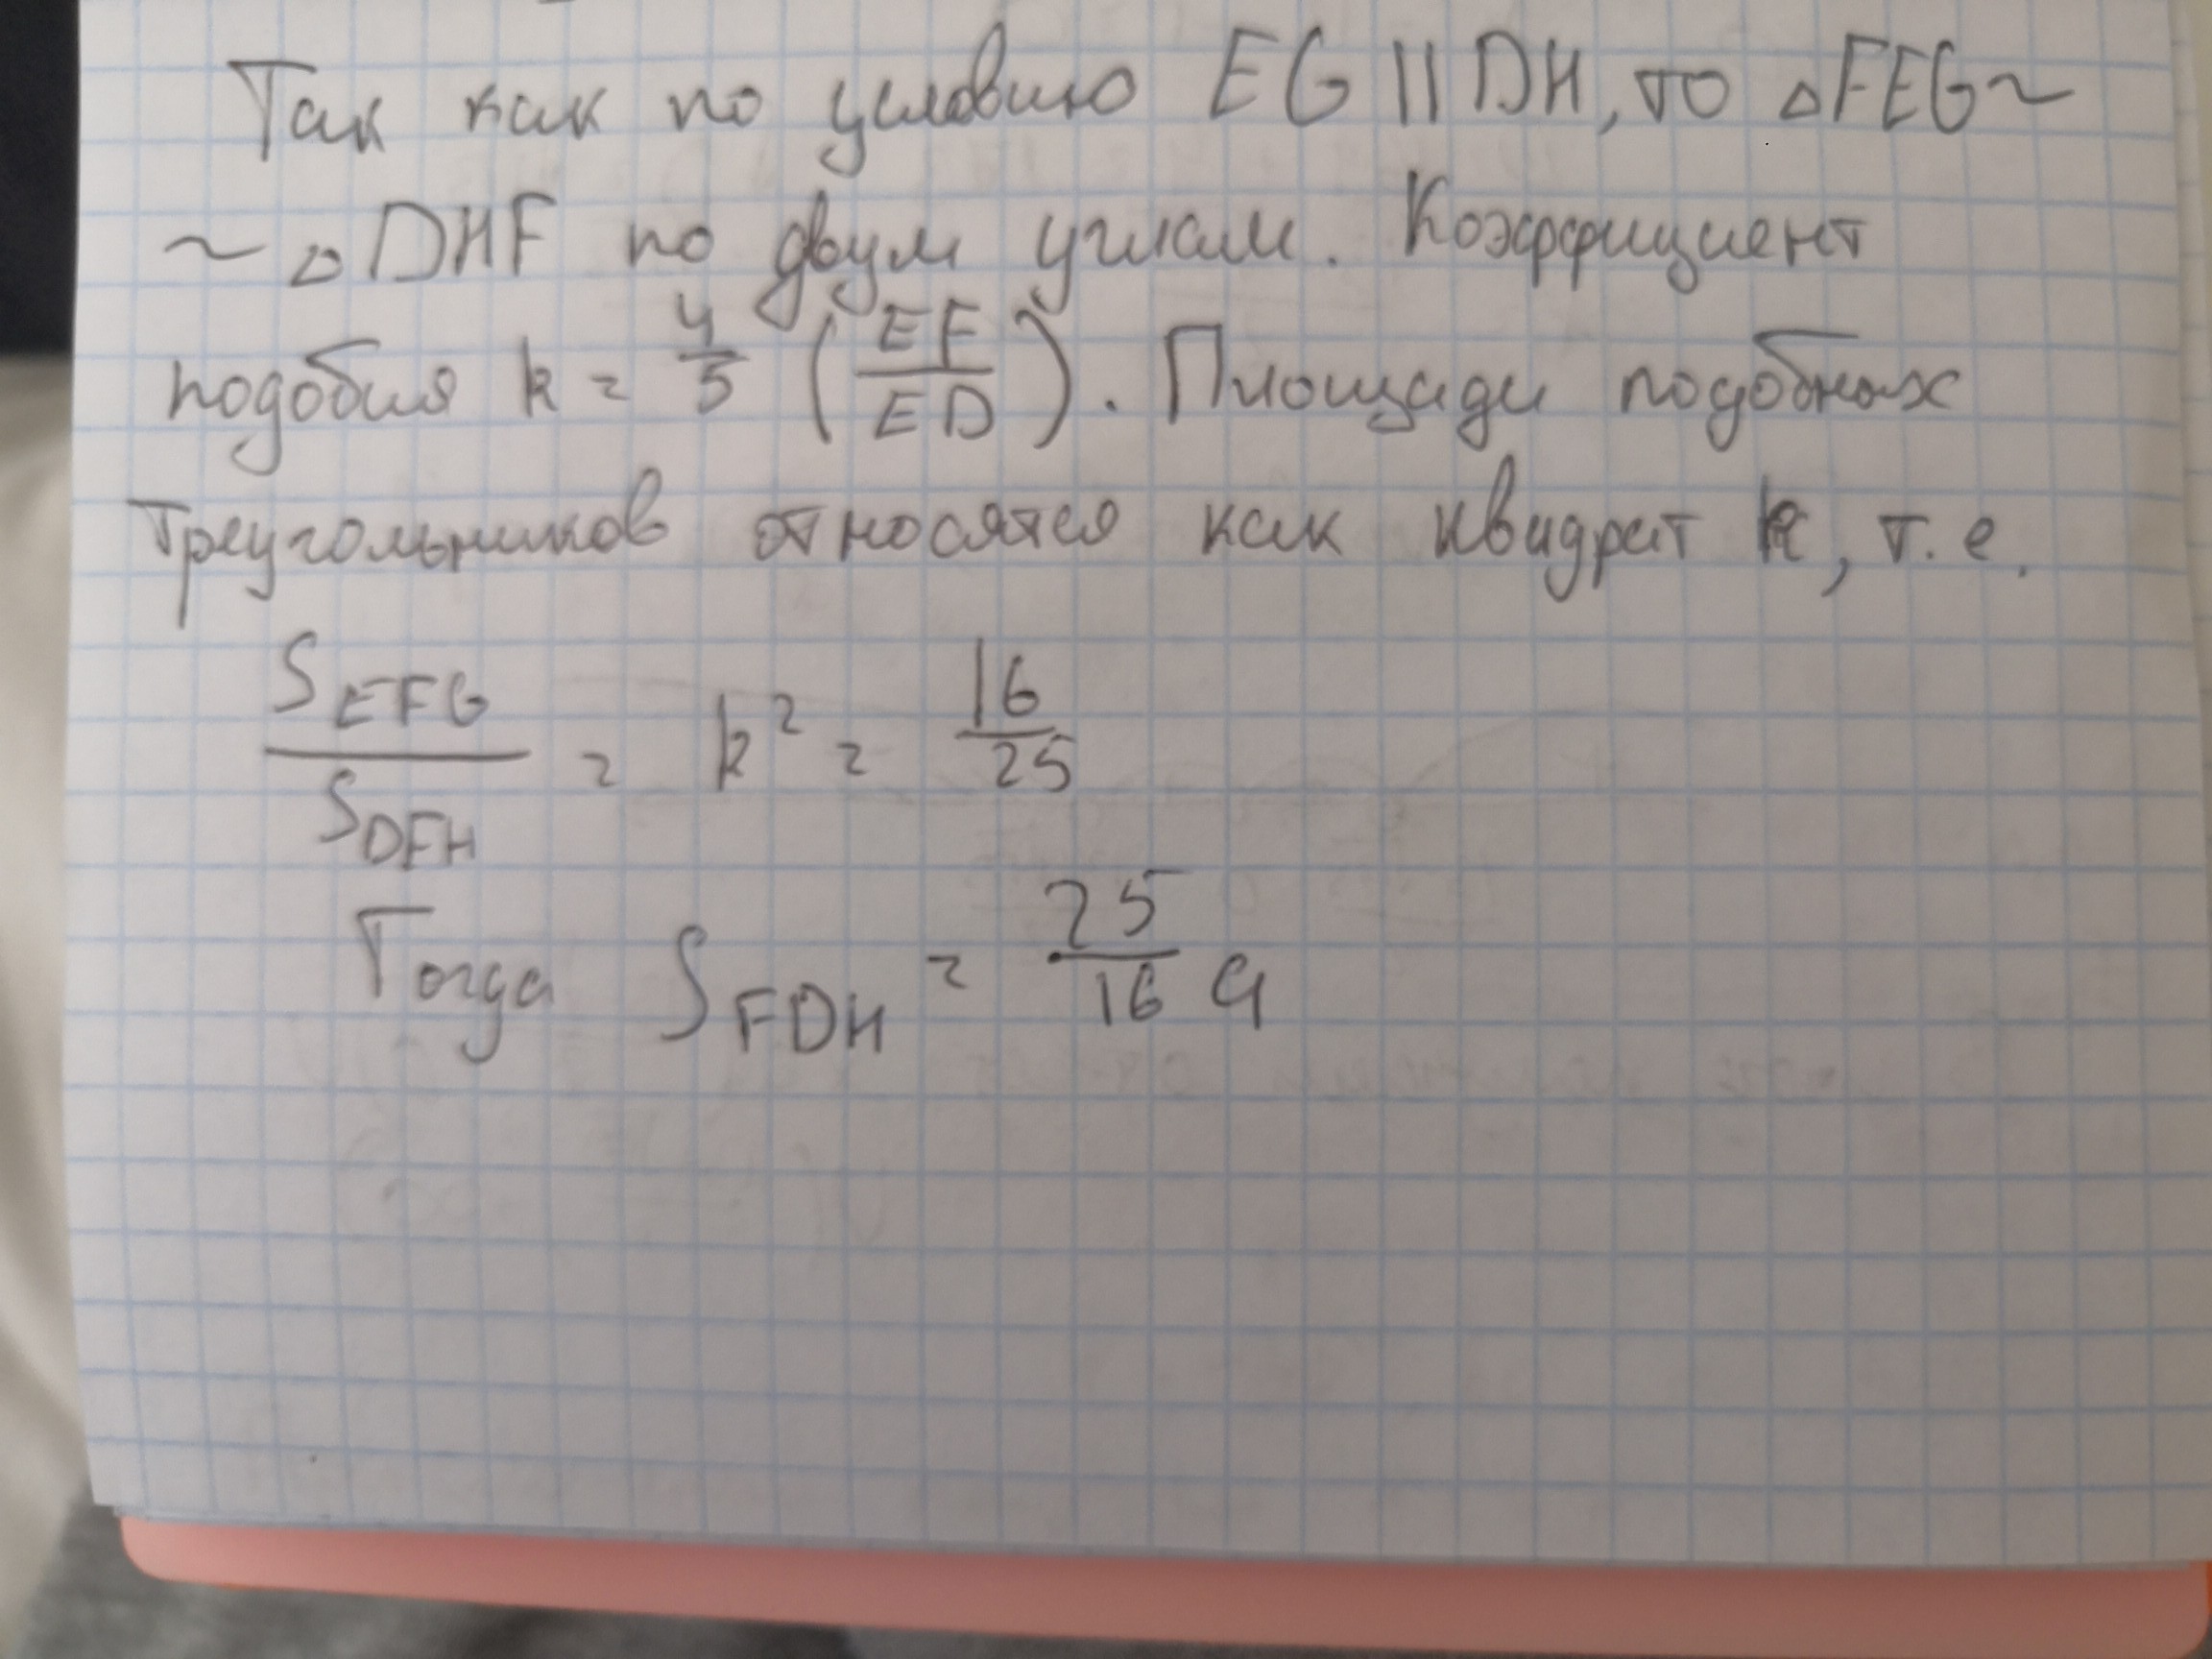 Так как по условию EG || DH, то △FEG ~
~ △DHF по двум углам. Коэффициент
подобия k = 4/5 (EF/ED). Площади подобных
треугольников относятся как квадрат k, т.е.
S EFG / S DFH = k² = 16/25
Тогда S FDH = 25/16 a